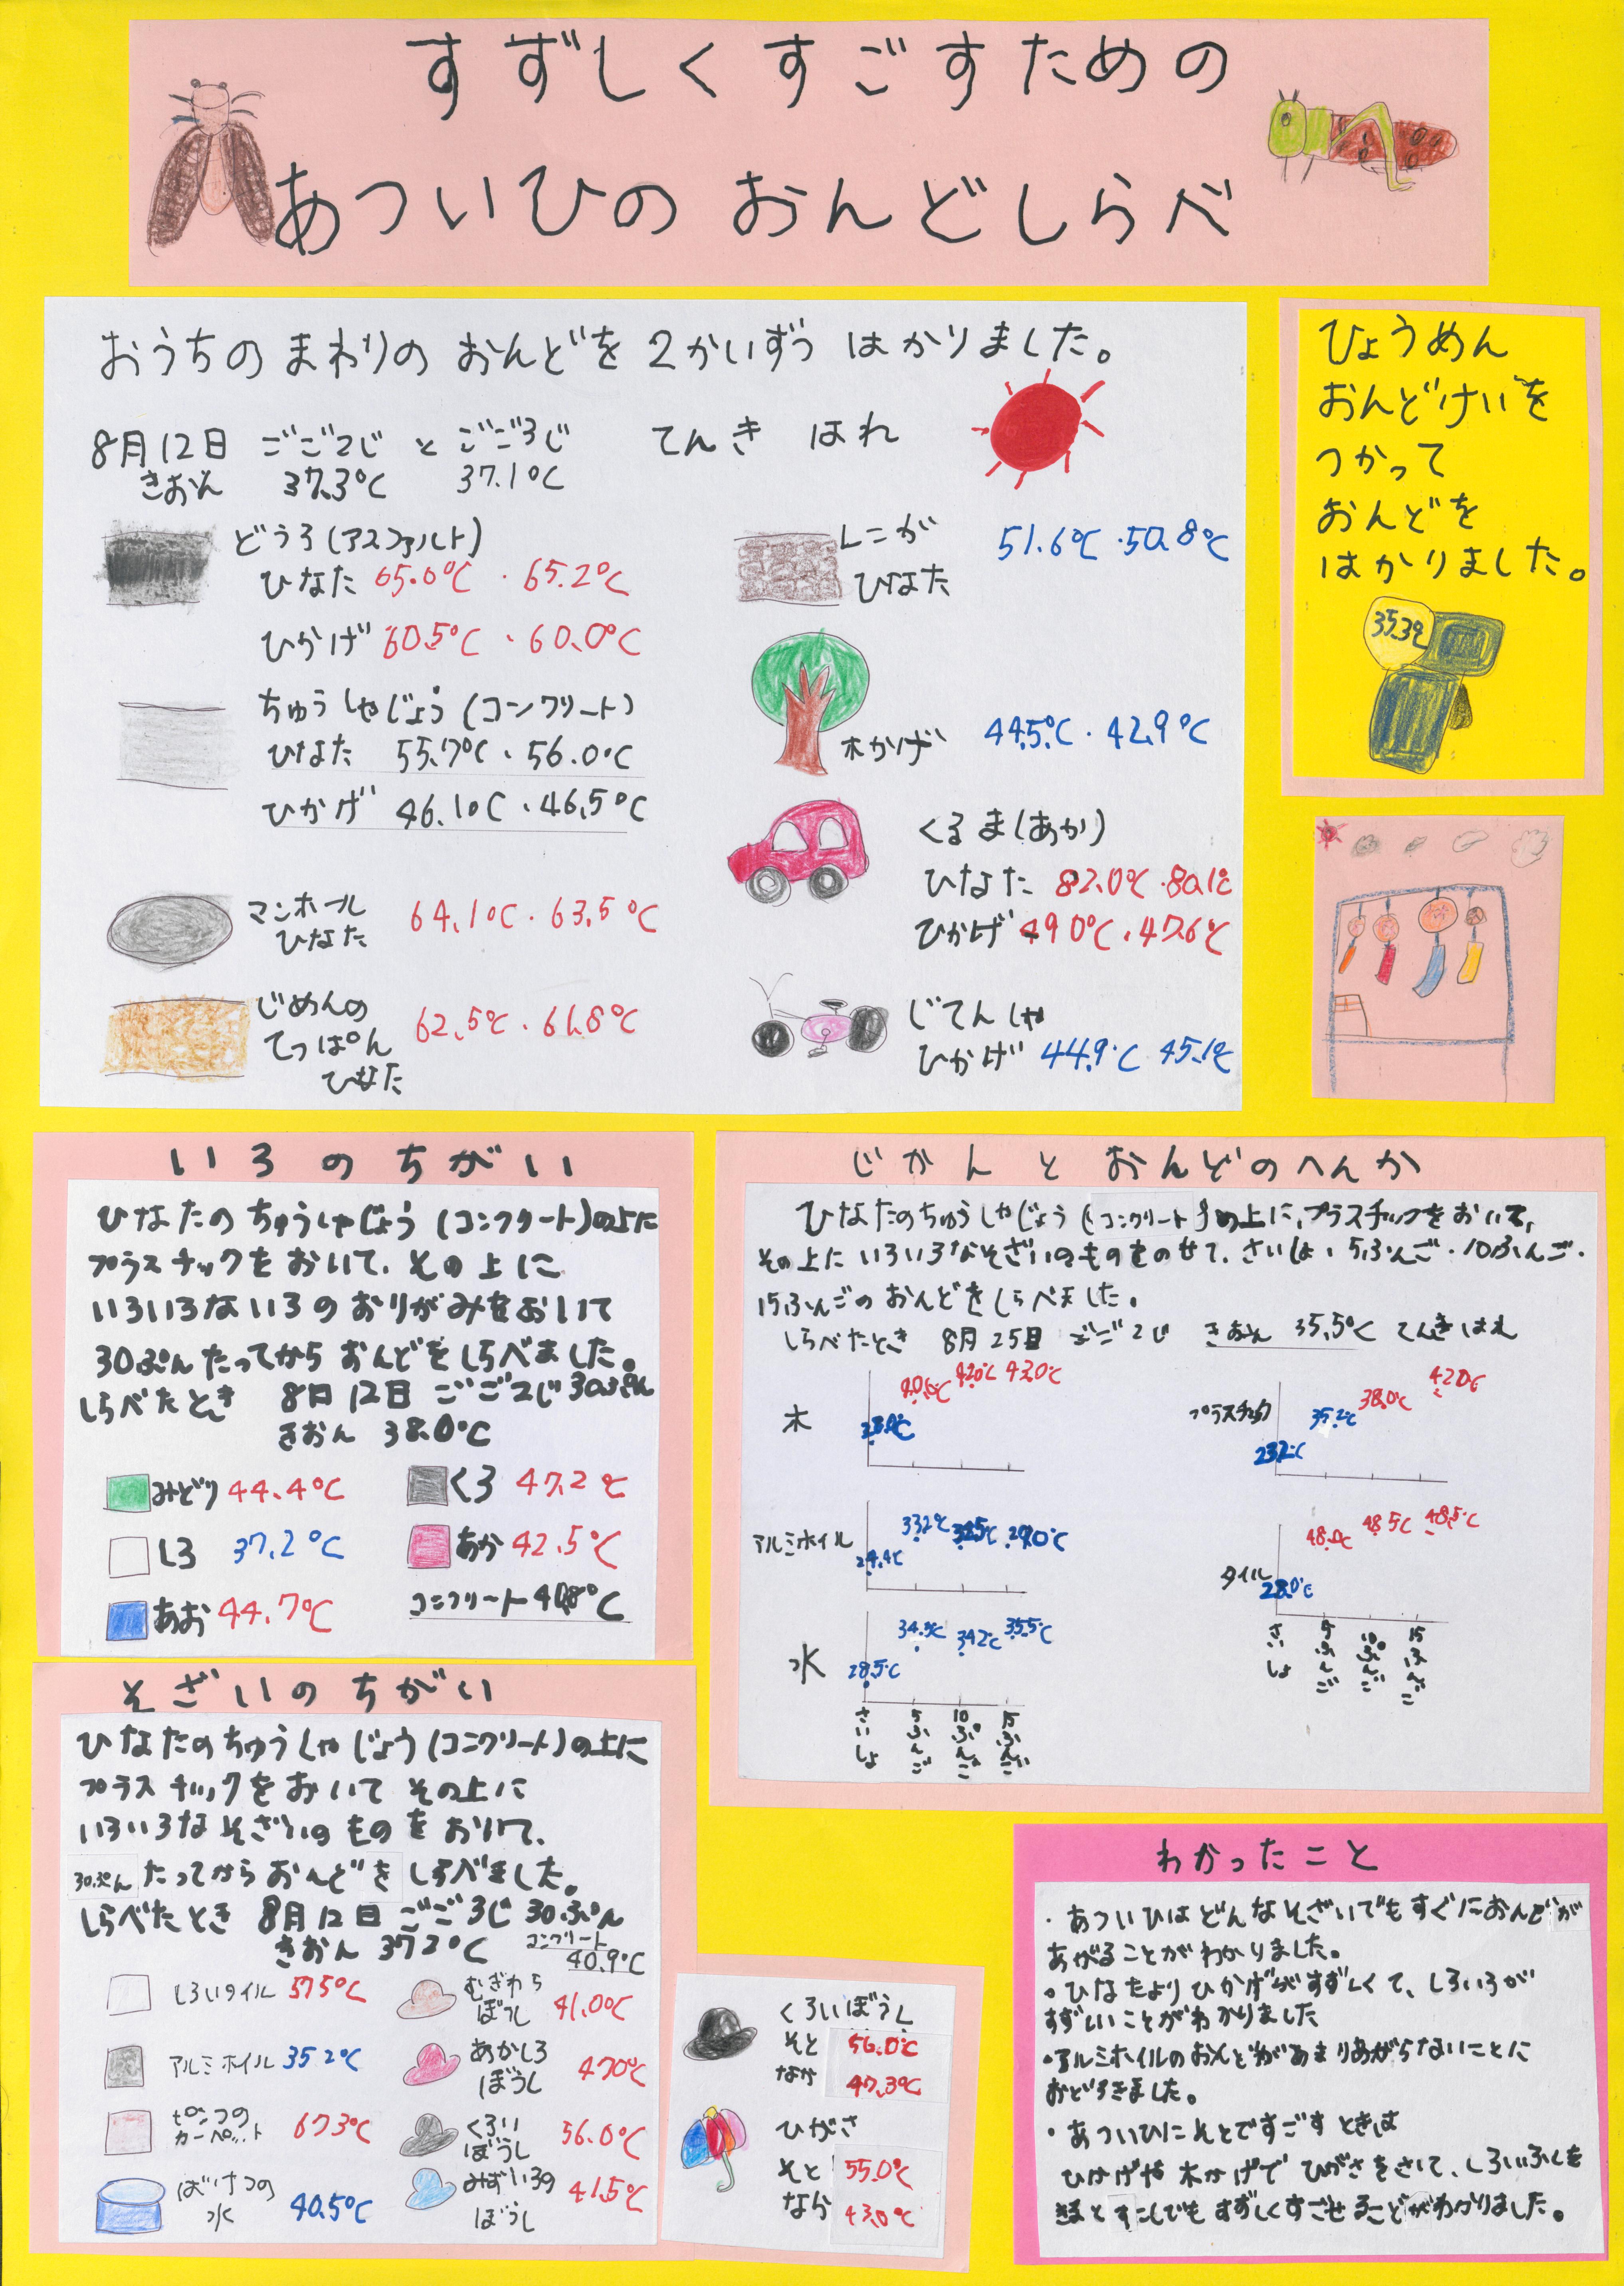 すずしくすごすための
あついひの おんどしらべ
おうちのまわりの おんどを 2かいずつ はかりました。
8月12日 ごご2じ と ごご3じ てんき はれ
きおん 37.3℃ 37.1℃
どうろ(アスファルト)
ひなた 65.0℃・65.2℃
ひかげ 60.5℃・60.0℃
ちゅうしゃじょう(コンクリート)
ひなた 55.7℃・56.0℃
ひかげ 46.1℃・46.5℃
マンホール
ひなた 64.1℃・63.5℃
じめんの
てっぱん 62.5℃・61.8℃
ひなた
レンガ 51.6℃・50.8℃
ひなた
木かげ 44.5℃・42.9℃
くるま(あか)
ひなた 82.0℃・80.1℃
ひかげ 49.0℃・47.6℃
じてんしゃ
ひかげ 44.9℃ 45.1℃
ひょうめん
おんどけいを
つかって
おんどを
はかりました。
35.3℃
いろのちがい
ひなたのちゅうしゃじょう(コンクリート)の上に
プラスチックをおいて、その上に
いろいろないろのおりがみをおいて
30ぷんたってから おんどをしらべました。
しらべたとき 8月12日 ごご2じ30ぷん
きおん 38.0℃
みどり 44.4℃
しろ 37.2℃
あお 44.7℃
くろ 47.2℃
あか 42.5℃
コンクリート 40.8℃
じかんとおんどのへんか
ひなたのちゅうしゃじょう(コンクリート)の上に、プラスチックをおいて、
その上に いろいろなそざいのものをのせて、さいしょ・5ふんご・10ぷんご・
15ふんごの おんどをしらべました。
しらべたとき 8月25日 ごご2じ きおん 35.5℃ てんきはれ
木
42.0℃ 43.0℃
プラスチック
23.2℃ 35.2℃ 38.0℃ 42.0℃
アルミホイル
33.2℃ 29.0℃
タイル
28.0℃ 48.0℃ 48.5℃ 48.5℃
水
28.5℃ 34.5℃ 34.2℃ 35.5℃
さいしょ 5ふんご 10ぷんご 15ふんご
さいしょ 5ふんご 10ぷんご 15ふんご
そざいのちがい
ひなたのちゅうしゃじょう(コンクリート)の上に
プラスチックをおいて その上に
いろいろなそざいのものをおいて、
30ぷんたってからおんどをしらべました。
しらべたとき 8月12日 ごご3じ30ぷん
きおん 37.2℃ コンクリート
40.9℃
しろいタイル 57.5℃
アルミホイル 35.2℃
ピンクの
カーペット 67.3℃
ばけつの
水 40.5℃
むぎわら
ぼうし 41.0℃
あかしろ
ぼうし 47.0℃
くろい
ぼうし 56.0℃
みずいろの
ぼうし 41.5℃
くろいぼうし
そと 56.0℃
なか 47.3℃
ひがさ
そと 55.0℃
なか 43.0℃
わかったこと
・あついひはどんなそざいでもすぐにおんどが
あがることがわかりました。
・ひなたよりひかげがすずしくて、しろいろが
すずしいことがわかりました
・アルミホイルのおんどがあまりあがらないことに
おどろきました。
・あついひにそとですごすときは
ひかげや木かげで ひがさをさして、しろいふくを
きるとすこしでもすずしくすごせることがわかりました。